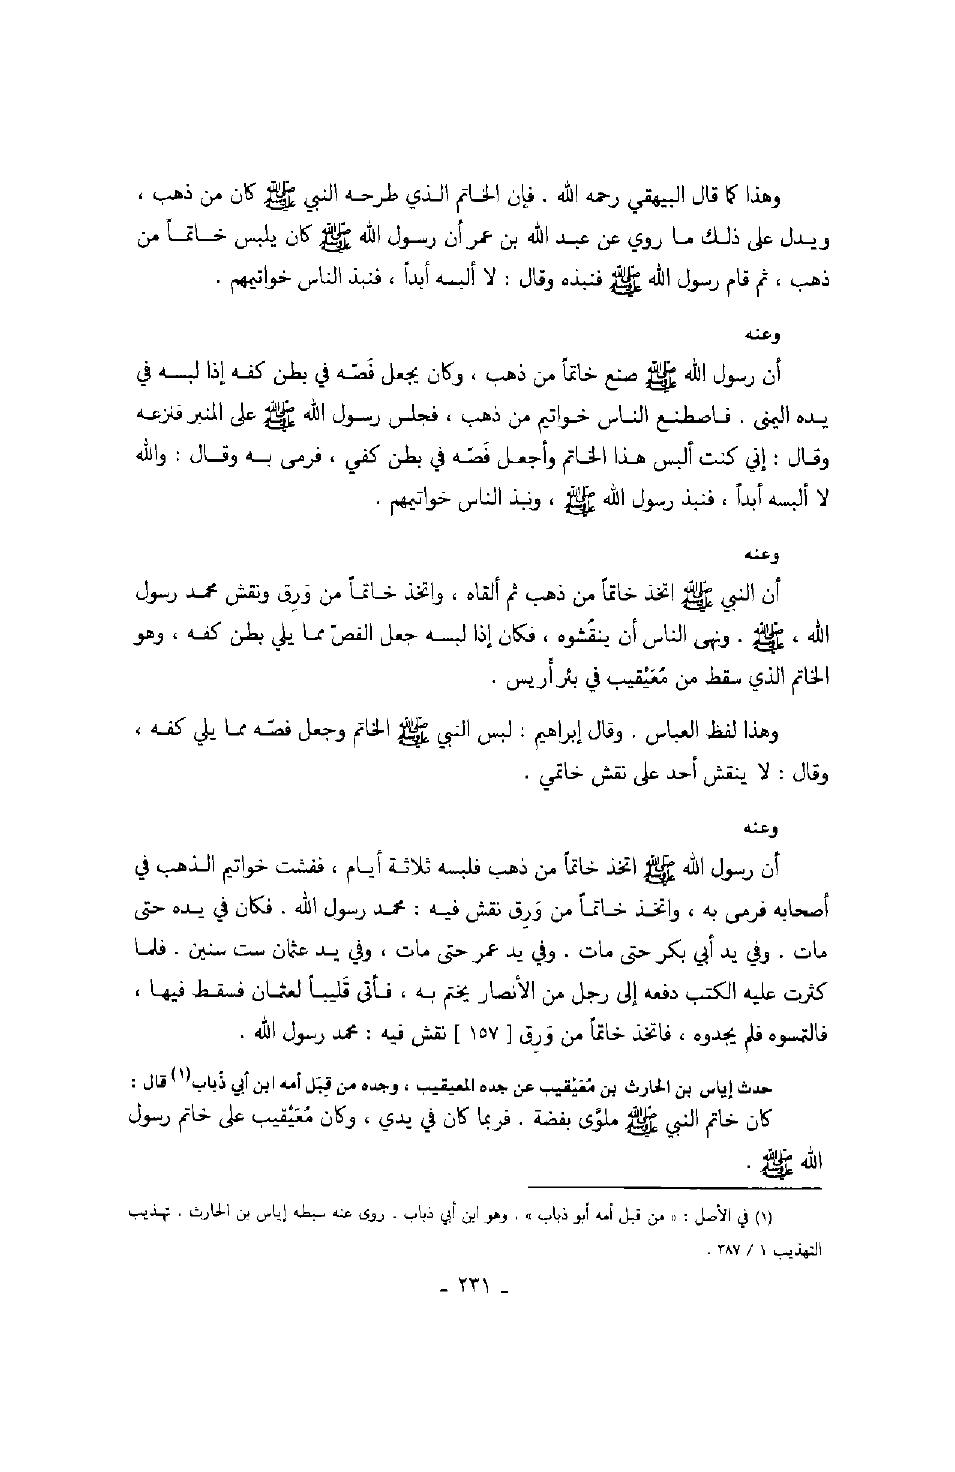 وهذا كما قال البيهقي رحمه الله . فإن الخاتم الذي طرحه النبي ﷺ كان من ذهب ،
ويدل على ذلك ما روي عن عبد الله بن عمر أن رسول الله ﷺ كان يلبس خاتماً من
ذهب ، ثم قام رسول الله ﷺ فنبذه وقال : لا ألبسه أبداً ، فنبذ الناس خواتيهم .
وعنه
أن رسول الله ﷺ صنع خاتماً من ذهب ، وكان يجعل فَصّه في بطن كفه إذا لبسه في
يده اليمنى . فاصطنع الناس خواتيم من ذهب ، فجلس رسول الله ﷺ على المنبر فنزعه
وقال : إني كنت ألبس هذا الخاتم وأجعل فَصّه في بطن كفي ، فرمى به وقال : والله
لا ألبسه أبداً ، فنبذ رسول الله ﷺ ، ونبذ الناس خواتيهم .
وعنه
أن النبي ﷺ اتخذ خاتماً من ذهب ثم ألقاه ، واتخذ خاتماً من وَرِق ونقش محمد رسول
الله ، ﷺ . ونهى الناس أن ينقُشوه ، فكان إذا لبسه جعل الفصّ مما يلي بطن كفه ، وهو
الخاتم الذي سقط من مُعَيْقيب في بئر أريس .
وهذا لفظ العباس . وقال إبراهيم : لبس النبي ﷺ الخاتم وجعل فصّه مما يلي كفه ،
وقال : لا ينقش أحد على نقش خاتمي .
وعنه
أن رسول الله ﷺ اتخذ خاتماً من ذهب فلبسه ثلاثة أيام ، ففشت خواتيم الذهب في
أصحابه فرمى به ، واتخذ خاتماً من وَرِق نقش فيه : محمد رسول الله . فكان في يده حتى
مات . وفي يد أبي بكر حتى مات . وفي يد عمر حتى مات ، وفي يد عثمان ست سنين . فلما
كثرت عليه الكتب دفعه إلى رجل من الأنصار يختم به ، فأتى قَليباً لعثمان فسقط فيها ،
فالتمسوه فلم يجدوه ، فاتخذ خاتماً من وَرِق [ ١٥٧ ] نقش فيه : محمد رسول الله .
حدث إياس بن الحارث بن مُعَيْقيب عن جده المعيقيب ، وجده من قِبَل أمه ابن أبي ذُباب(١) قال :
كان خاتم النبي ﷺ ملوَّى بفضة . فربما كان في يدي ، وكان مُعَيْقيب على خاتم رسول
الله ﷺ .
(١) في الأصل : « من قبل أمه أبو ذباب » . وهو ابن أبي ذباب . روى عنه سبطه إياس بن الحارث . تهذيب
التهذيب ١ / ٣٨٧ .
- ٢٣١ -